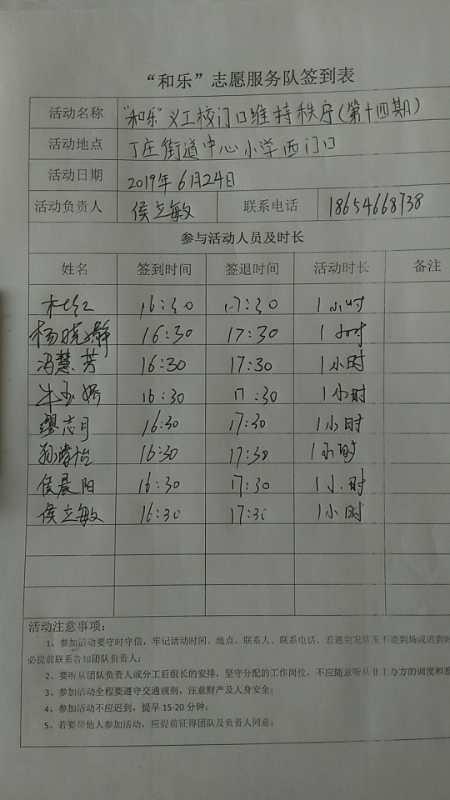 “和乐”志愿服务队签到表
活动名称 “和乐”义工校门口维持秩序(第十四期)
活动地点 丁庄街道中心小学西门口
活动日期 2019年6月24日
活动负责人 侯立敏 联系电话 18654668738
参与活动人员及时长
姓名 签到时间 签退时间 活动时长 备注
杜红 16:30 17:30 1小时
杨晓静 16:30 17:30 1小时
冯慧芳 16:30 17:30 1小时
牛玉娇 16:30 17:30 1小时
缪志月 16:30 17:30 1小时
孙 16:30 17:30 1小时
侯晨阳 16:30 17:30 1小时
侯立敏 16:30 17:30 1小时
活动注意事项:
1、参加活动要守时守信,牢记活动时间、地点、联系人、联系电话,
必提前联系告知团队负责人;
2、要听从团队负责人或分工后组长的安排,坚守分配的工作岗位,不应随意听从
3、参加活动全程要遵守交通规则,注意财产及人身安全;
4、参加活动不应迟到,提早15-20分钟;
5、若要带他人参加活动,应提前征得团队及负责人同意;